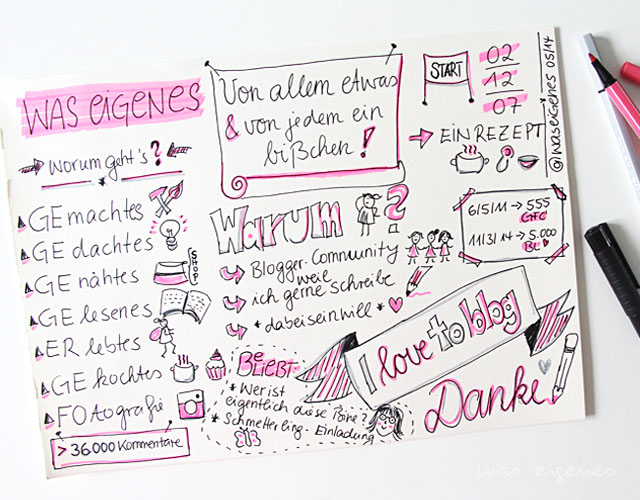 WAS EIGENES
Worum geht's?
GEmachtes
GE dachtes
GE nähtes
SHOP
GE lesenes
ER lebtes
GE kochtes
FOtografie
> 36000 Kommentare
Von allem etwas
& von jedem ein
bißchen!
Warum?
Blogger-Community
weil
ich gerne schreibe
*dabeiseinwill*
BeLIEBT
* Wer ist
eigentlich diese Bine?
* Schmetterling-Einladung
START
02
12
07
EIN REZEPT
@waseigenes 05/14
6/5/11 → 555
GFC
11/3/14 → 5.000
BL
I love to blog
Danke
was eigenes